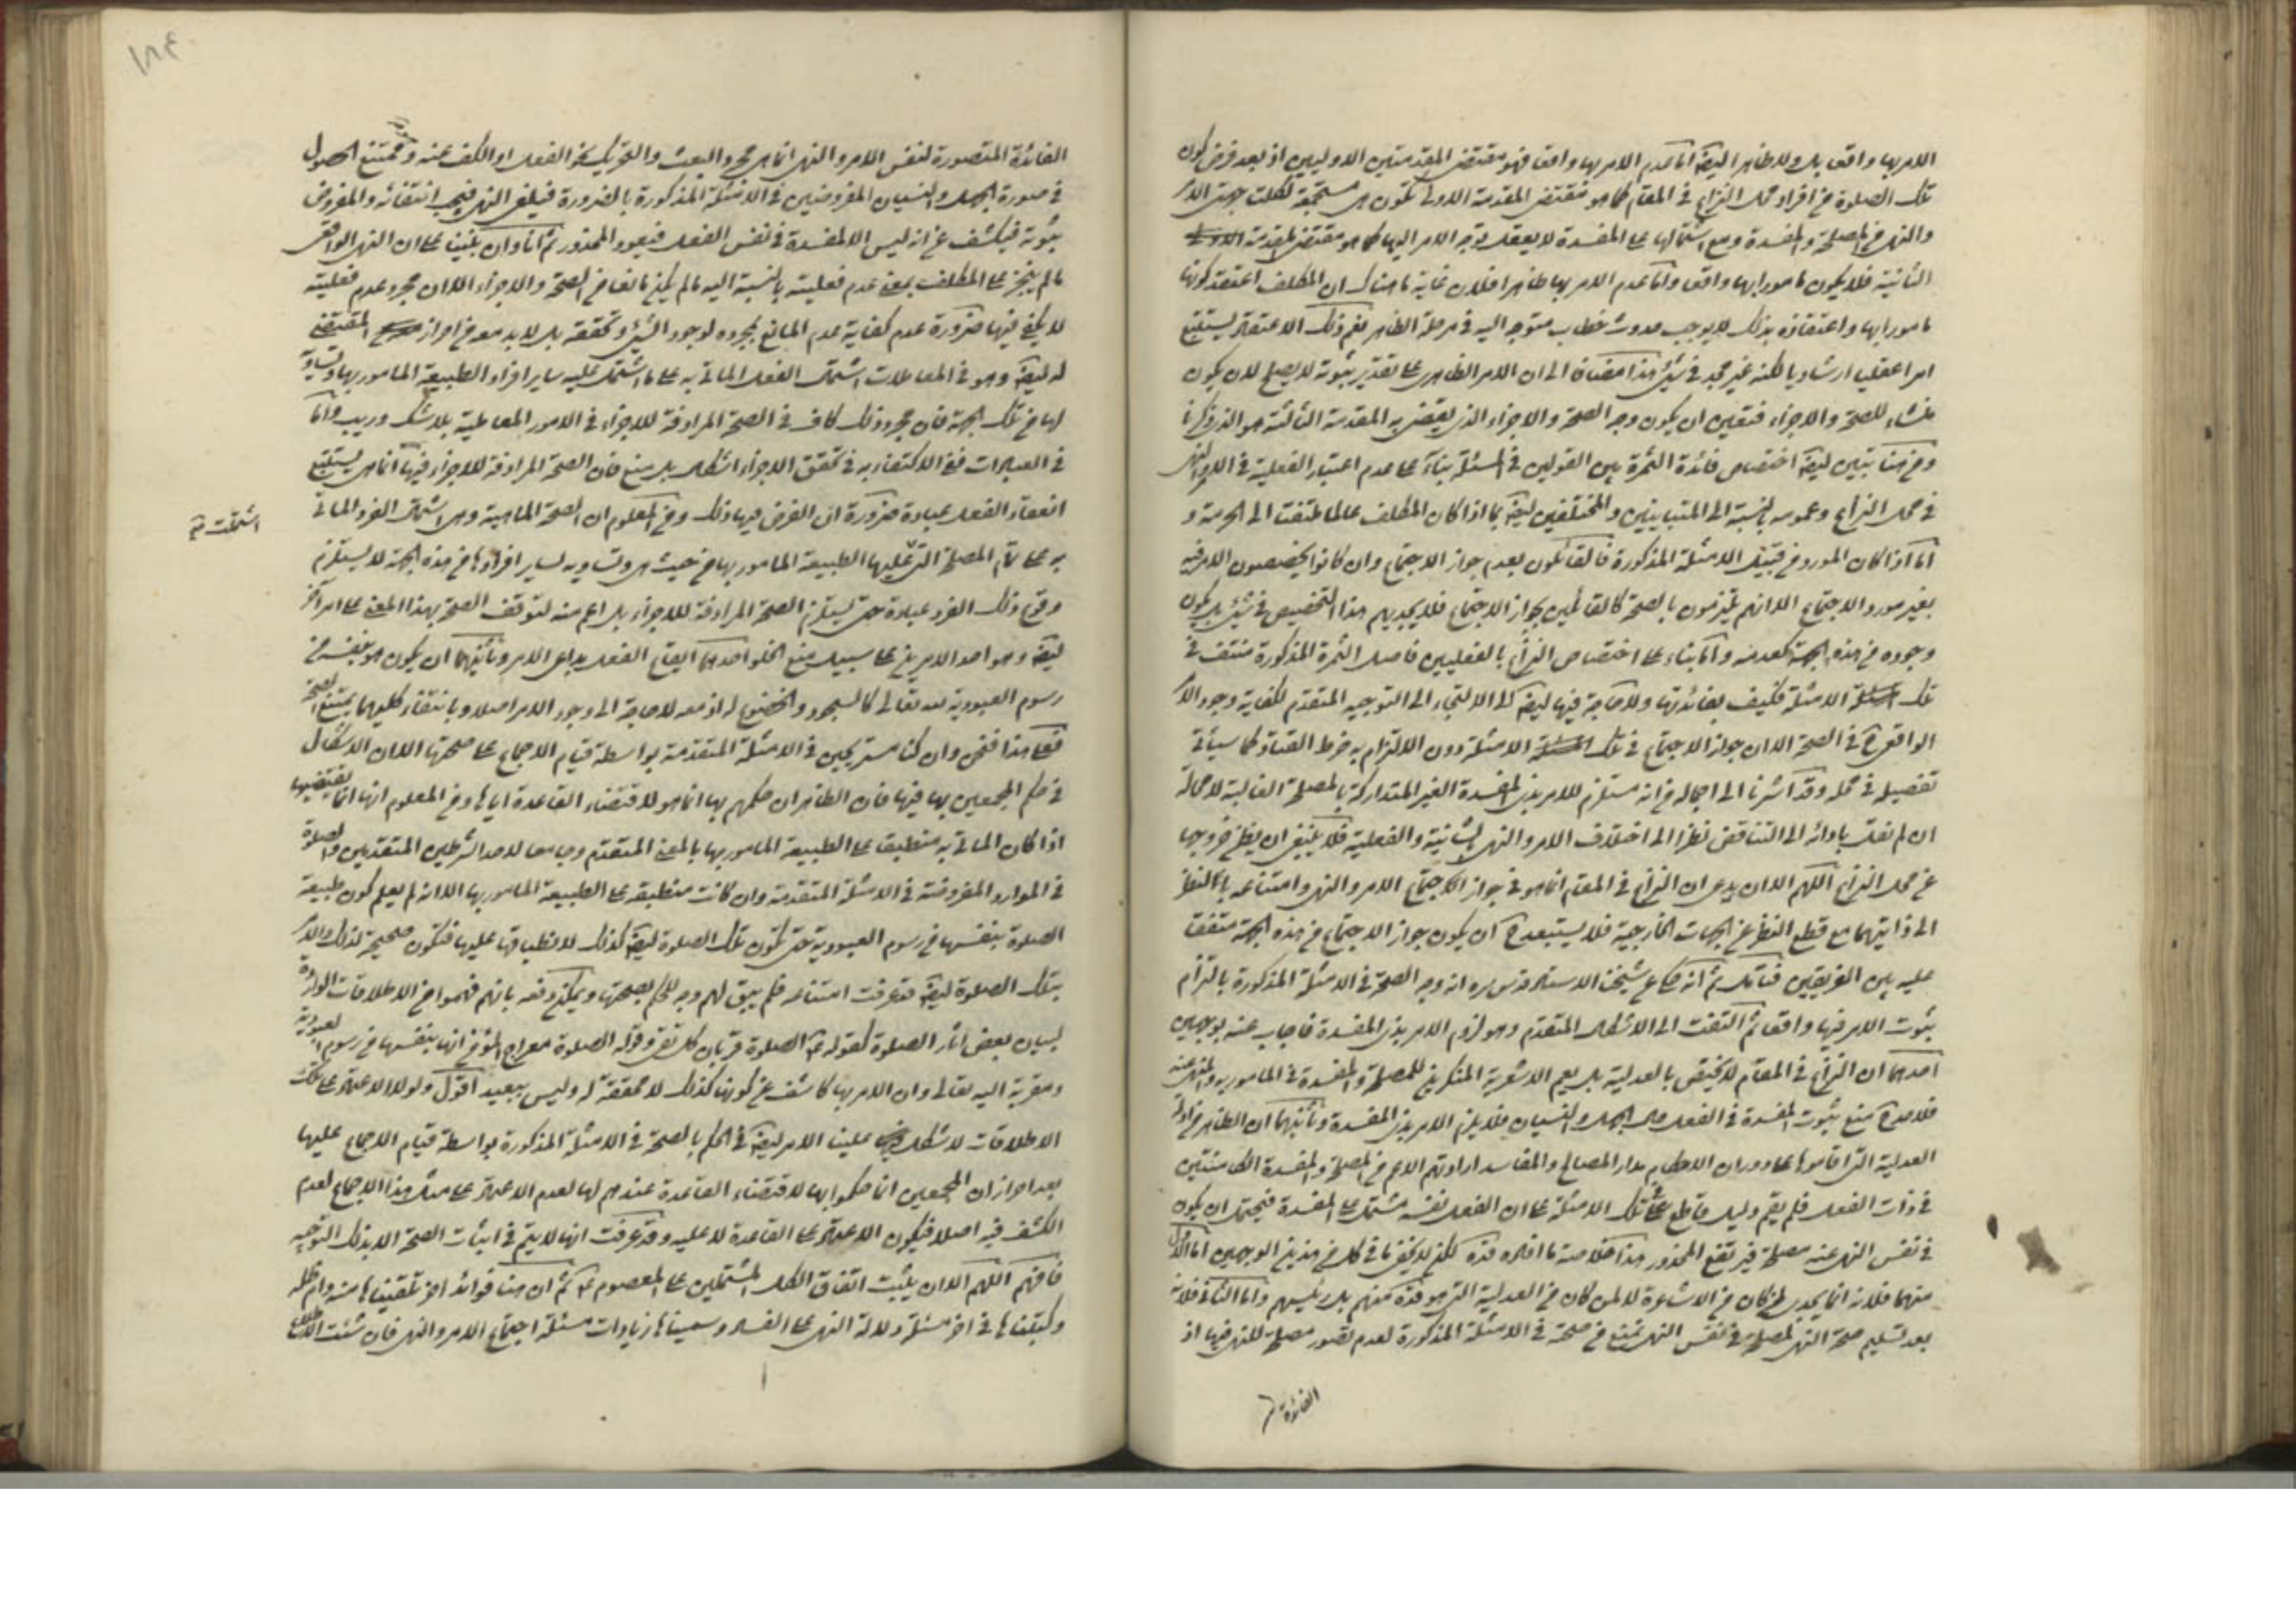 الامر بها واقعا بل ولا ظاهرا ايضا اما عدم الامر بها واقعا فهو مقتضى المقدمتين الاوليين اذ بعد فرض كون
تلك الصلوة من افراد محل النزاع في المقام كما هو مقتضى المقدمة الاولى تكون هي مستجمعة لكلتا جهتي الامر
والنهي من المصلحة والمفسدة ومع اشتمالها على المفسدة لا يعقل توجه الامر اليها كما هو مقتضى المقدمة
الثانية فلا يكون مامورا بها واقعا واما عدم الامر بها ظاهرا فلان غاية ما هناك ان المكلف اعتقد كونها
مامورا بها واعتقاده بذلك لا يوجب حدوث خطاب متوجه اليه في مرحلة الظاهر نعم ذلك الاعتقاد يستتبع
امرا عقليا ارشاديا لكنه غير مجد في شيء هذا مضافا الى ان الامر الظاهري على تقدير ثبوته لا يصلح لان يكون
منشاء للصحة والاجزاء فتعين ان يكون وجه الصحة والاجزاء الذي يقتضي به المقدمة الثالثة هو الذي ذكرنا
ومن هنا تبين ايضا اختصاص فائدة الثمرة بين القولين في المسئلة بناء على عدم اعتبار الفعلية في الامر والنهي
في محل النزاع وعمومه بالنسبة الى المتباينين والمختلفين ايضا بما اذا كان المكلف عالما ملتفتا الى الحرمة و
اما اذا كان المورد من قبيل الامثلة المذكورة فالقائلون بعدم جواز الاجتماع وان كانوا يخصصون الامر فيه
بغير مورد الاجتماع الا انهم يلتزمون بالصحة كالقائلين بجواز الاجتماع فلا يجديهم هذا التخصيص في شيء بل يكون
وجوده من هذه الجهة كعدمه واما بناء على اختصاص النزاع بالفعليين فاصل الثمرة المذكورة منتف في
تلك الامثلة فكيف بفائدتها ولا حاجة فيها ايضا الى الالتجاء الى التوجيه المتقدم لكفاية وجود الامر
الواقعي في الصحة الا ان جواز الاجتماع في تلك الامثلة دون الالتزام به خرط القتاد كما سيأتي
تفصيله في محله وقد اشرنا الى اجماله من انه مستلزم للامر بذي المفسدة الغير المتداركة بالمصلحة الغالبة لا محالة
ان لم نقل باوله الى التناقض نظرا الى اختلاف الامر والنهي بالشانية والفعلية فلا ينبغي ان يظن خروجها
عن محل النزاع اللهم الا ان يدعى ان النزاع في المقام انما هو في جواز اجتماع الامر والنهي وامتناعه بالنظر
الى ذاتيهما مع قطع النظر عن الجهات الخارجية فلا يستبعد ان يكون جواز الاجتماع من هذه الجهة متفقا
عليه بين الفريقين فتأمل ثم انه حكى عن شيخنا الاستاد قدس سره انه وجه الصحة في الامثلة المذكورة بالتزام
ثبوت الامر فيها واقعا ثم التفت الى الاشكال المتقدم وهو لزوم الامر بذي المفسدة فاجاب عنه بوجهين
احدهما ان النزاع في المقام لا يختص بالعدلية بل يعم الاشعرية المنكرين للمصلحة والمفسدة في المامور به والمنهي عنه
فلاحد منع ثبوت المفسدة في الفعل حال الجهل والنسيان فلا يلزم الامر بذي المفسدة وثانيهما ان الظاهر من ادلة
العدلية التي اقاموها على دوران الاحكام مدار المصالح والمفاسد ارادتهم الاعم من المصلحة والمفسدة الكامنتين
في ذات الفعل فلم يقم دليل قاطع على تلك الامثلة على ان الفعل نفسه مشتمل على المفسدة فيحتمل ان يكون
في نفس النهي عنه مصلحة فيرتفع المحذور هذا خلاصة ما افاده قده لكن لا يخفى ما في كل من هذين الوجهين اما الاول
منهما فلانه انما يجدي لمن كان من الاشاعرة لا لمن كان من العدلية التي هو قده منهم بل رئيسهم واما الثاني فلانه
بعد تسليم صحة النهي لمصلحة في نفس النهي نمنع من صحته في الامثلة المذكورة لعدم تصور مصلحة للنهي فيها اذ
الفائدة
الفائدة المتصورة لنفس الامر والنهي انما هي مجرد البعث والتحريك نحو الفعل او الكف عنه وهو ممتنع الحصول
في صورة الجهل والنسيان المفروضين في الامثلة المذكورة بالضرورة فيلغى النهي فيجب انتفائه والمفروض
ثبوته فيكشف عن انه ليس الا لمفسدة في نفس الفعل فيعود المحذور ثم انا وان بنينا على ان النهي الواقعي
ما لم ينجز على المكلف بمعنى عدم فعليته بالنسبة اليه ما لم يكن مانعا من الصحة والاجزاء الا ان مجرد عدم فعليته
لا يكفي فيها ضرورة عدم كفاية عدم المانع بمجرده لوجود الشيء وتحققه بل لا بد معه من احراز المقتضي
له ايضا وهو في المعاملات اشتمال الفعل الماتي به على ما اشتمل عليه ساير افراد الطبيعة المامور بها وتساويه
لها من تلك الجهة فان مجرد ذلك كاف في الصحة المرادفة للاجزاء في الامور المعاملية بلا شك وريب واما
في العبادات ففي الاكتفاء به في تحقق الاجزاء اشكال بل منع فان الصحة المرادفة للاجزاء فيها انما هي يستتبع
انعقاد الفعل عبادة ضرورة ان الغرض فيها ذلك ومن المعلوم ان الصحة الماهية وهي اشتمال الفرد الماتي
اشتملت
به على تمام المصلحة التي عليها الطبيعة المامور بها من حيث هي وتساويه لساير افرادها من هذه الجهة لا يستلزم
وقوع ذلك الفرد عبادة حتى يستلزم الصحة المرادفة للاجزاء بل اعم منه لتوقف الصحة بهذا المعنى على امر آخر
ايضا وهو احد الامرين على سبيل منع الخلو احدهما ايقاع الفعل بداعي الامر وثانيهما ان يكون هو بنفسه من
رسوم العبودية لله تعالى كالسجود والخضوع له اذ معه لا حاجة الى وجود الامر اصلا وبانتفاء كليهما يمتنع الصحة
فعلى هذا فنحن وان كنا مستريحين في الامثلة المتقدمة بواسطة قيام الاجماع على صحتها الا ان الاشكال
في حكم المجمعين بها فيها فان الظاهر ان حكمهم بها انما هو لاقتضاء القاعدة اياها ومن المعلوم انها انما يقتضيها
اذا كان الماتي به منطبقا على الطبيعة المامور بها بالمعنى المتقدم وجامعا لاحد الشرطين المتقدمين والصلوة
في الموارد المفروضة في الامثلة المتقدمة وان كانت منطبقة على الطبيعة المامور بها الا انه لم يعلم كون طبيعة
الصلوة بنفسها من رسوم العبودية حتى تكون تلك الصلوة ايضا كذلك لانطباقها عليها فتكون صحيحة لذلك والامر
بتلك الصلوة ايضا قد عرفت امتناعه فلم يبق لهم وجه للحكم بصحتها ويمكن دفعه بانهم فهموا من الاطلاقات الواردة
لبيان بعض آثار الصلوة كقوله الصلوة قربان كل تقي وقوله الصلوة معراج المؤمن انها بنفسها من رسوم العبودية
ومقربة اليه تعالى وان الامر بها كاشف عن كونها كذلك لا محققة له وليس ببعيد اقول ولولا الاعتماد على تلك
الاطلاقات لاشكل علينا الامر ايضا في الحكم بالصحة في الامثلة المذكورة بواسطة قيام الاجماع عليها
بعد احراز ان المجمعين انما حكموا بها لاقتضاء القاعدة عندهم لها لعدم الاعتماد على مثل هذا الاجماع لعدم
الكشف فيه اصلا فيكون الاعتماد على القاعدة لا عليه وقد عرفت انها لا يتم في اثبات الصحة الا بذلك التوجيه
فافهم اللهم الا ان يثبت اتفاق الكل المشتملين على المعصوم ثم ان هنا فوائد اخر تلقيناها منه دام ظله
وكتبناها في اخر مسئلة دلالة النهي على الفساد وسميناها زيادات مسئلة اجتماع الامر والنهي فان شئت الاطلاع